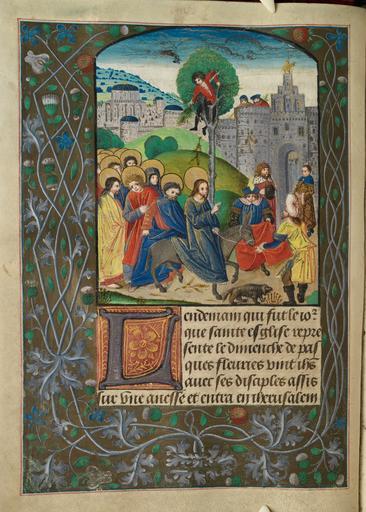 Lendemain qui fut le io
que sainte esglise repre
sente le dimenche de pas
ques fleuries vint ihs
auec ses disciples assis
sur vne anesse et entra en iherusalem